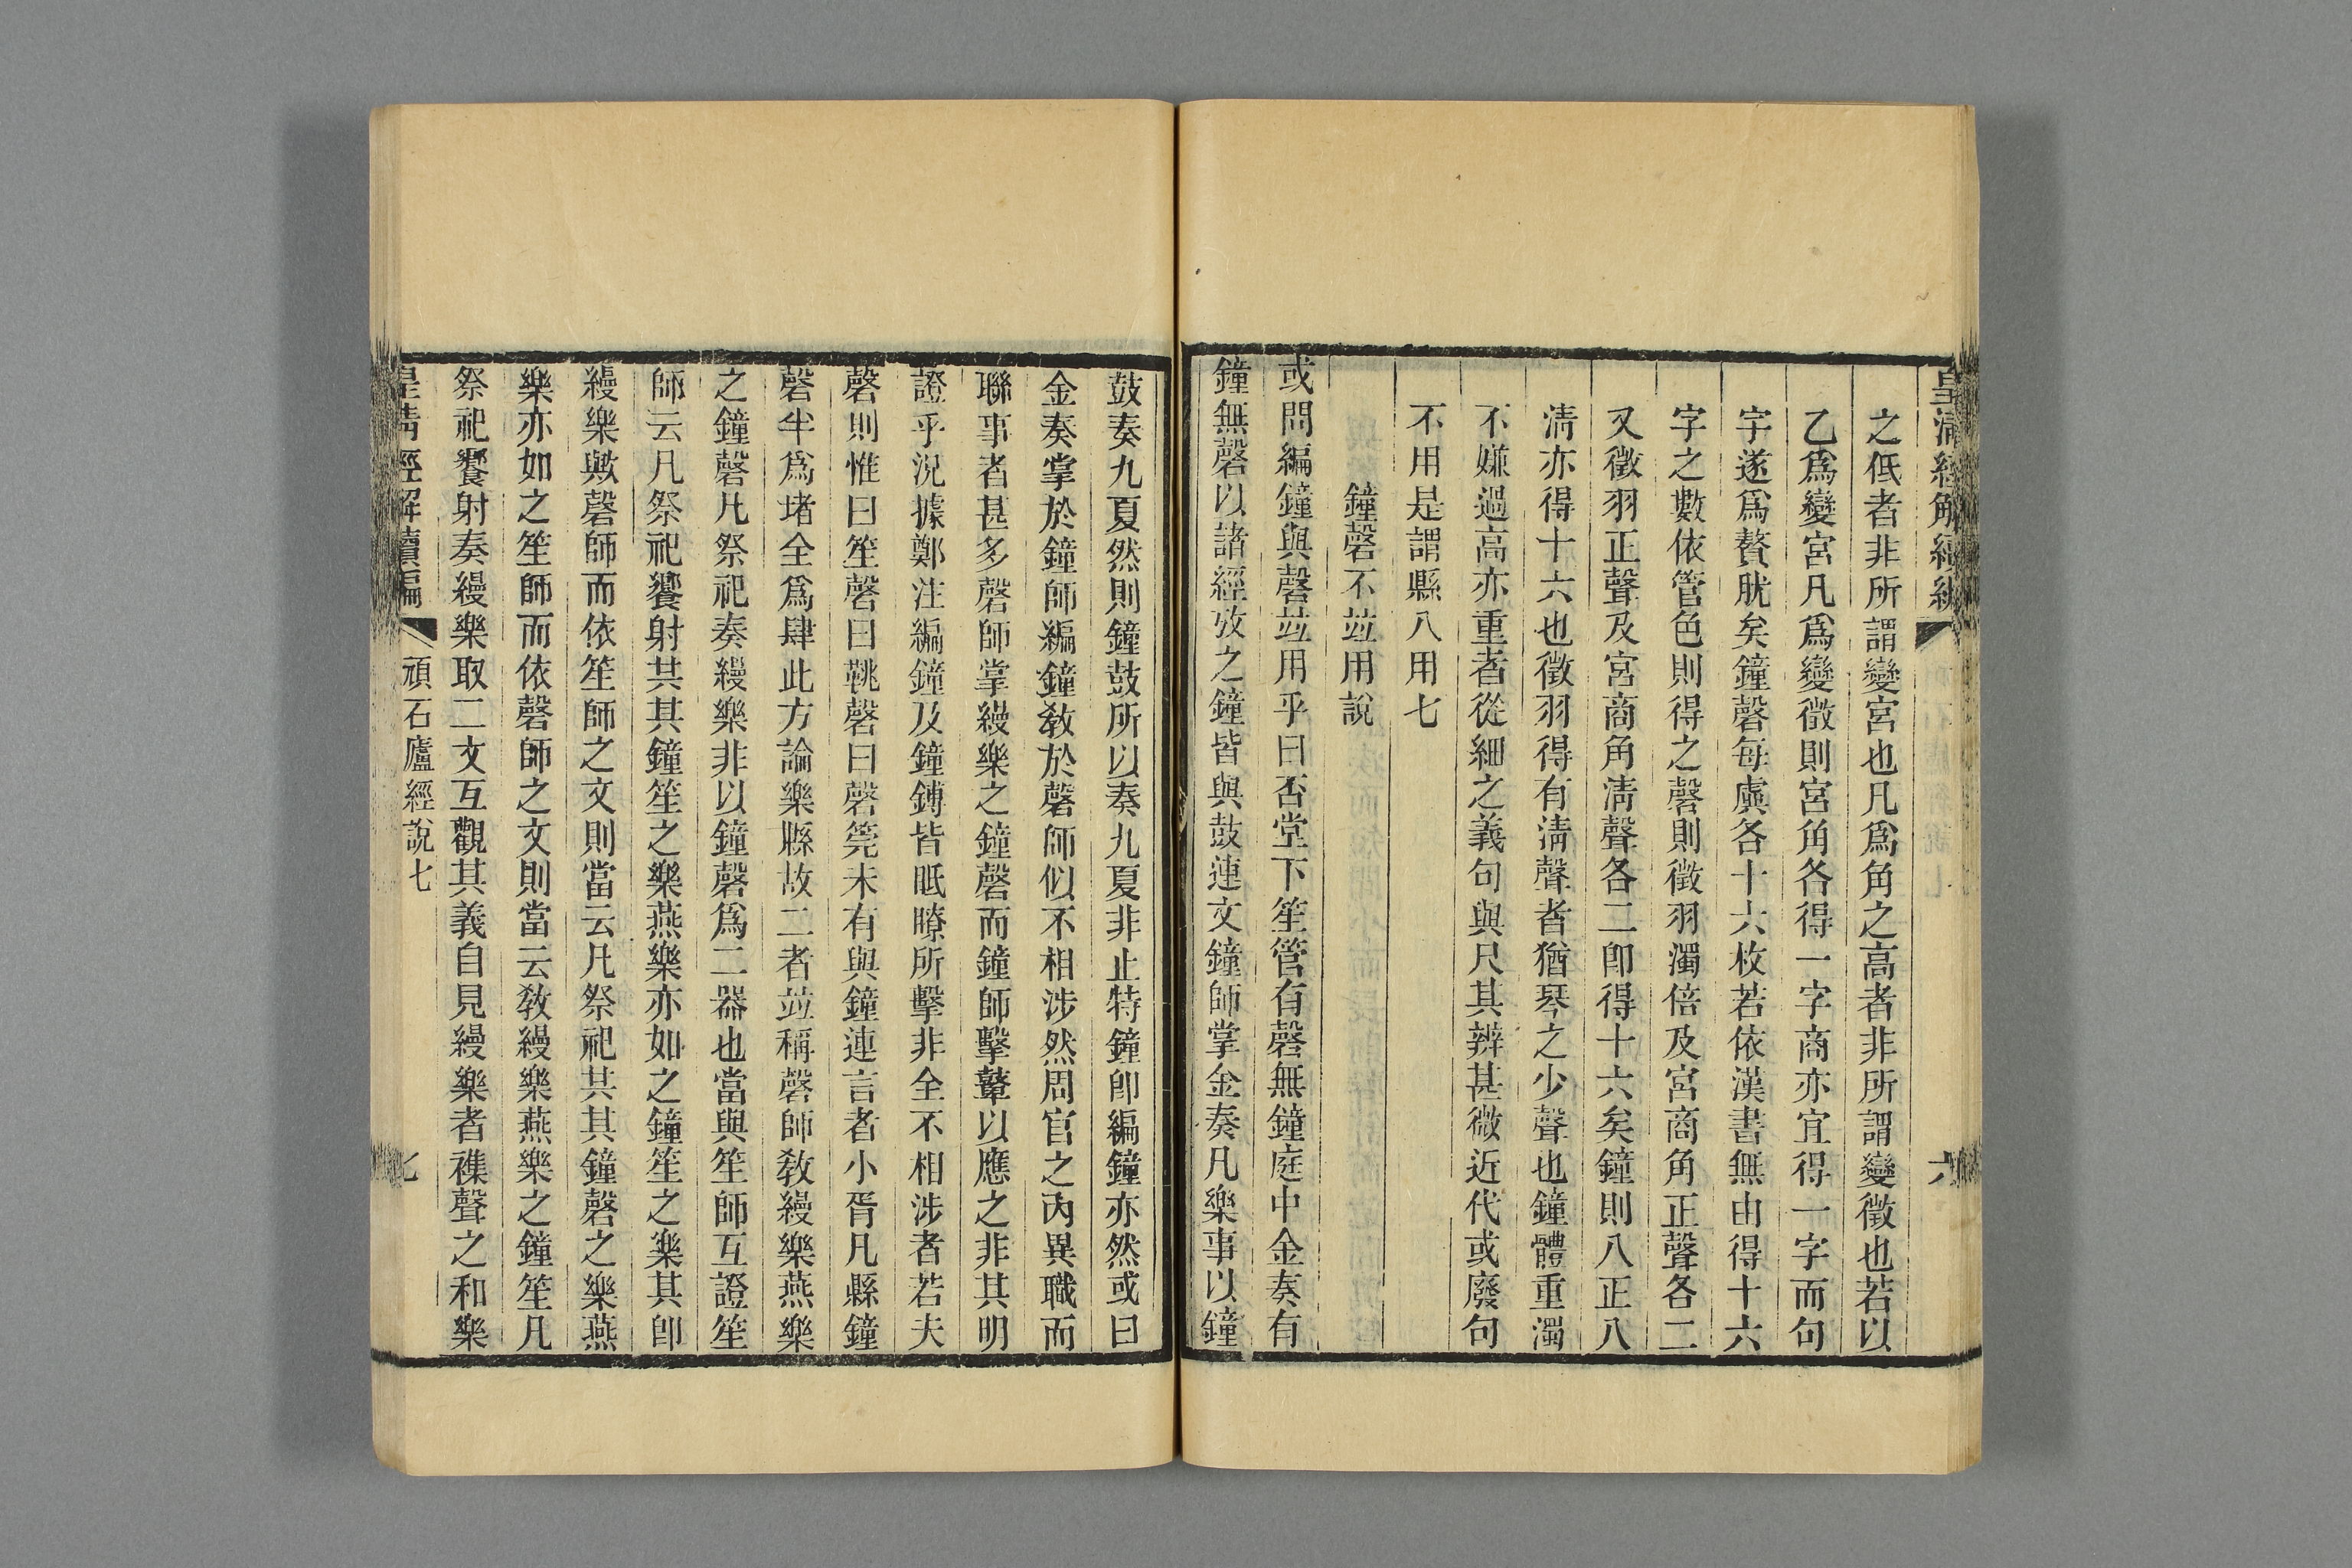 皇清經解續編
六
之低者非所謂變宮也凡爲角之高者非所謂變徵也若以
乙爲變宮凡爲變徵則宮角各得一字商亦宜得一字而句
字遂爲贅肬矣鐘磬每虡各十六枚若依漢書無由得十六
字之數依管色則得之磬則徵羽濁倍及宮商角正聲各二
又徵羽正聲及宮商角淸聲各二卽得十六矣鐘則八正八
淸亦得十六也徵羽得有淸聲者猶琴之少聲也鐘體重濁
不嫌過高亦重者從細之義句與尺其辨甚微近代或廢句
不用是謂縣八用七
鐘磬不竝用說
或問編鐘與磬竝用乎曰否堂下笙管有磬無鐘庭中金奏有
鐘無磬以諸經攷之鐘皆與鼓連文鐘師掌金奏凡樂事以鐘
鼓奏九夏然則鐘鼓所以奏九夏非止特鐘卽編鐘亦然或曰
金奏掌於鐘師編鐘敎於磬師似不相涉然周官之內異職而
聯事者甚多磬師掌縵樂之鐘磬而鐘師擊鼙以應之非其明
證乎況據鄭注編鐘及鐘鎛皆眡瞭所擊非全不相涉者若夫
磬則惟曰笙磬曰鞉磬曰磬筦未有與鐘連言者小胥凡縣鐘
磬半爲堵全爲肆此方論樂縣故二者竝稱磬師敎縵樂燕樂
之鐘磬凡祭祀奏縵樂非以鐘磬爲二器也當與笙師互證笙
師云凡祭祀饗射共其鐘笙之樂燕樂亦如之鐘笙之樂其卽
縵樂歟磬師而依笙師之文則當云凡祭祀共其鐘磬之樂燕
樂亦如之笙師而依磬師之文則當云敎縵樂燕樂之鐘笙凡
祭祀饗射奏縵樂取二文互觀其義自見縵樂者襍聲之和樂
皇淸經解續編
頑石廬經說七
七